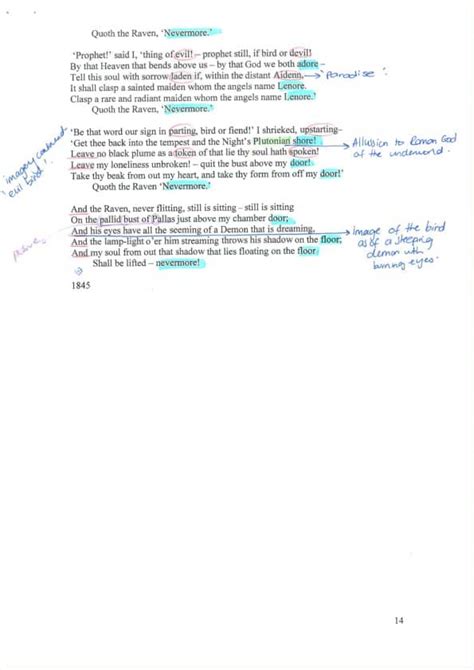 Quoth the Raven, 'Nevermore.'
'Prophet!' said I, 'thing of evil! – prophet still, if bird or devil!
By that Heaven that bends above us – by that God we both adore –
Tell this soul with sorrow laden if, within the distant Aidenn, → 'Paradise'
It shall clasp a sainted maiden whom the angels name Lenore.
Clasp a rare and radiant maiden whom the angels name Lenore.'
Quoth the Raven, 'Nevermore.'
'Be that word our sign in parting, bird or fiend!' I shrieked, upstarting–
'Get thee back into the tempest and the Night's Plutonian shore!
Leave no black plume as a token of that lie thy soul hath spoken!
Leave my loneliness unbroken! – quit the bust above my door!
Take thy beak from out my heart, and take thy form from off my door!'
Quoth the Raven 'Nevermore.'
Allusion to Roman God
of the underworld.
imagery
evil bird'.
And the Raven, never flitting, still is sitting – still is sitting
On the pallid bust of Pallas just above my chamber door;
And his eyes have all the seeming of a Demon that is dreaming,
And the lamp-light o'er him streaming throws his shadow on the floor;
And my soul from out that shadow that lies floating on the floor
Shall be lifted – nevermore!
image of the bird
as of a sleeping
demon with
burning eyes.
1845
14